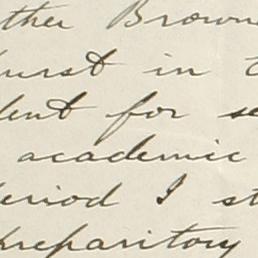 ther Browne
hurst in
dent for se
academic
eriod I st
preparitory